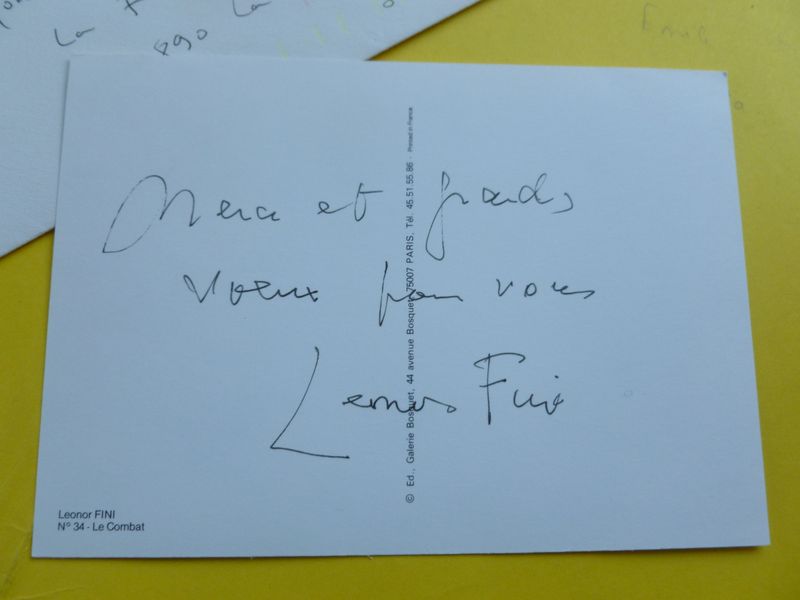 La
890
La
Merci et grands
voeux pour vous
Leonor Fini
© Ed., Galerie Bosquet, 44 avenue Bosquet, 75007 PARIS, Tél. 45.51.55.86 - Printed in France
Leonor FINI
N° 34 - Le Combat